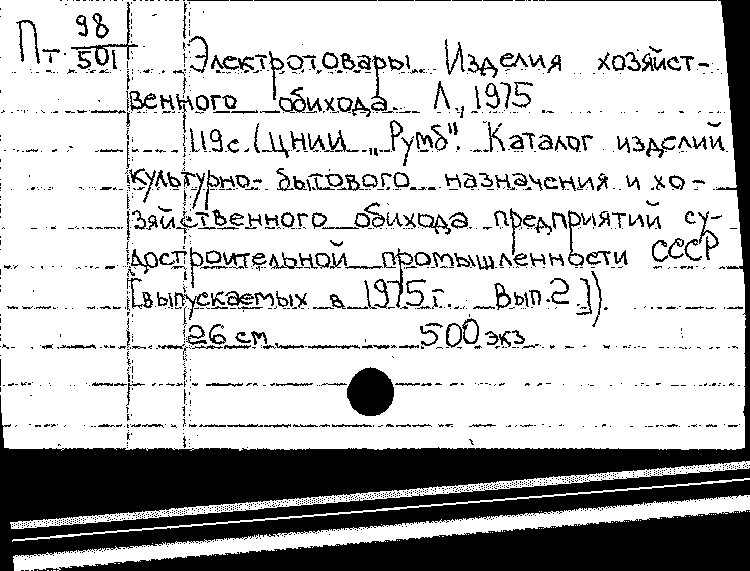 Пт 98/501
Электротовары. Изделия хозяйст-
венного обихода. Л., 1975
119 с. (ЦНИИ „Румб". Каталог изделий
культурно-бытового назначения и хо-
зяйственного обихода предприятий су-
достроительной промышленности СССР
[выпускаемых в 1975 г. Вып. 2]).
26 см. 500 экз